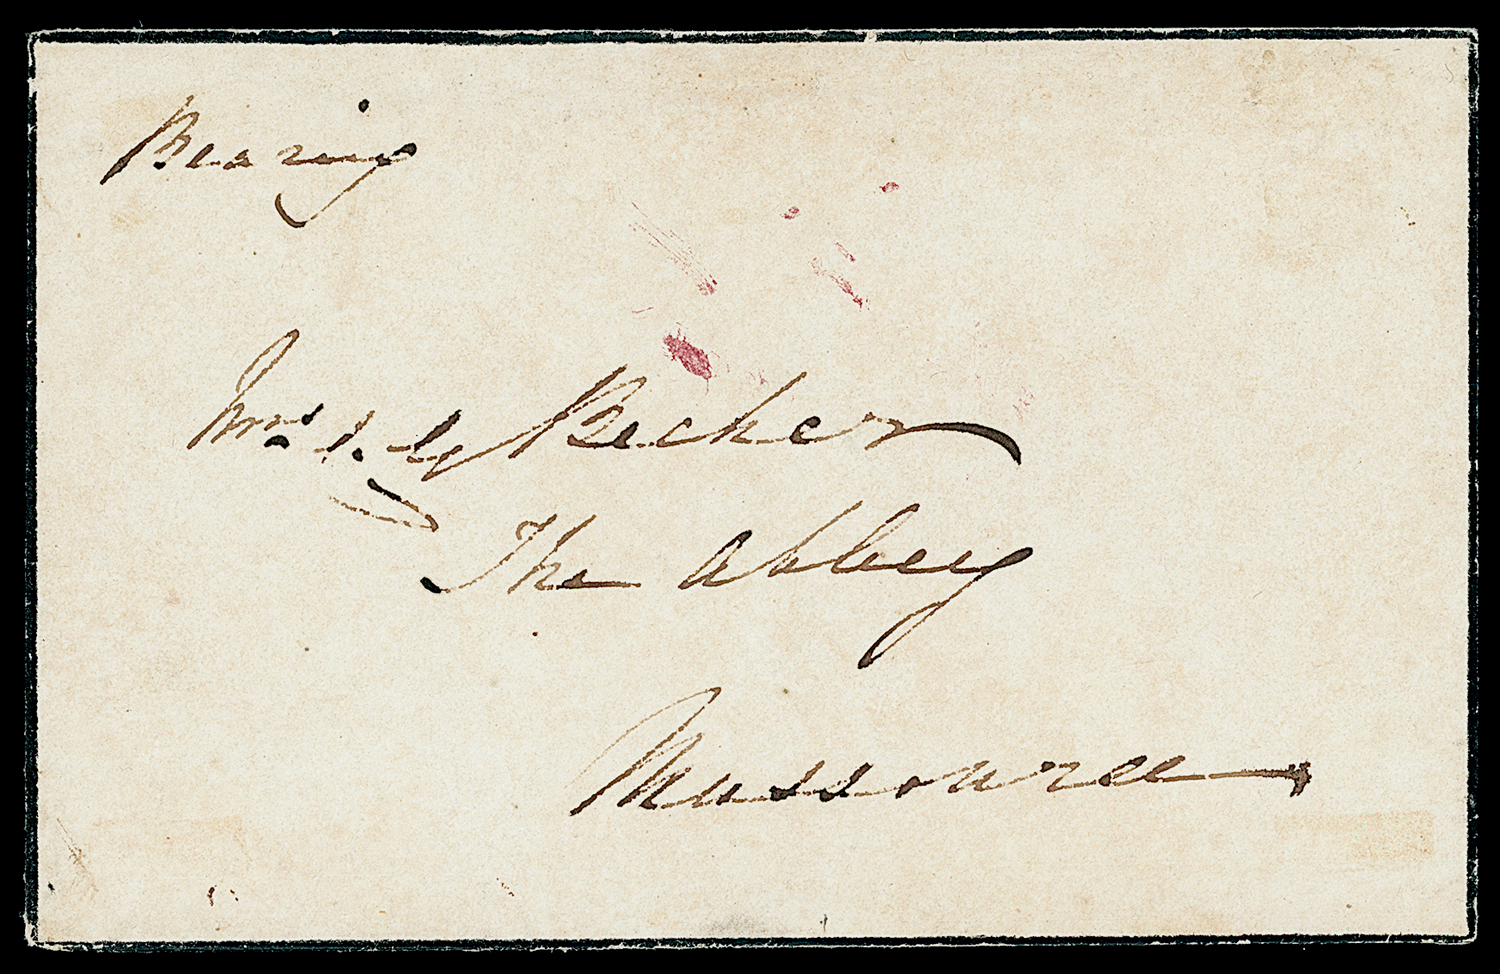 Bearing
Mrs J. G Becher
The Abbey
Mussouree